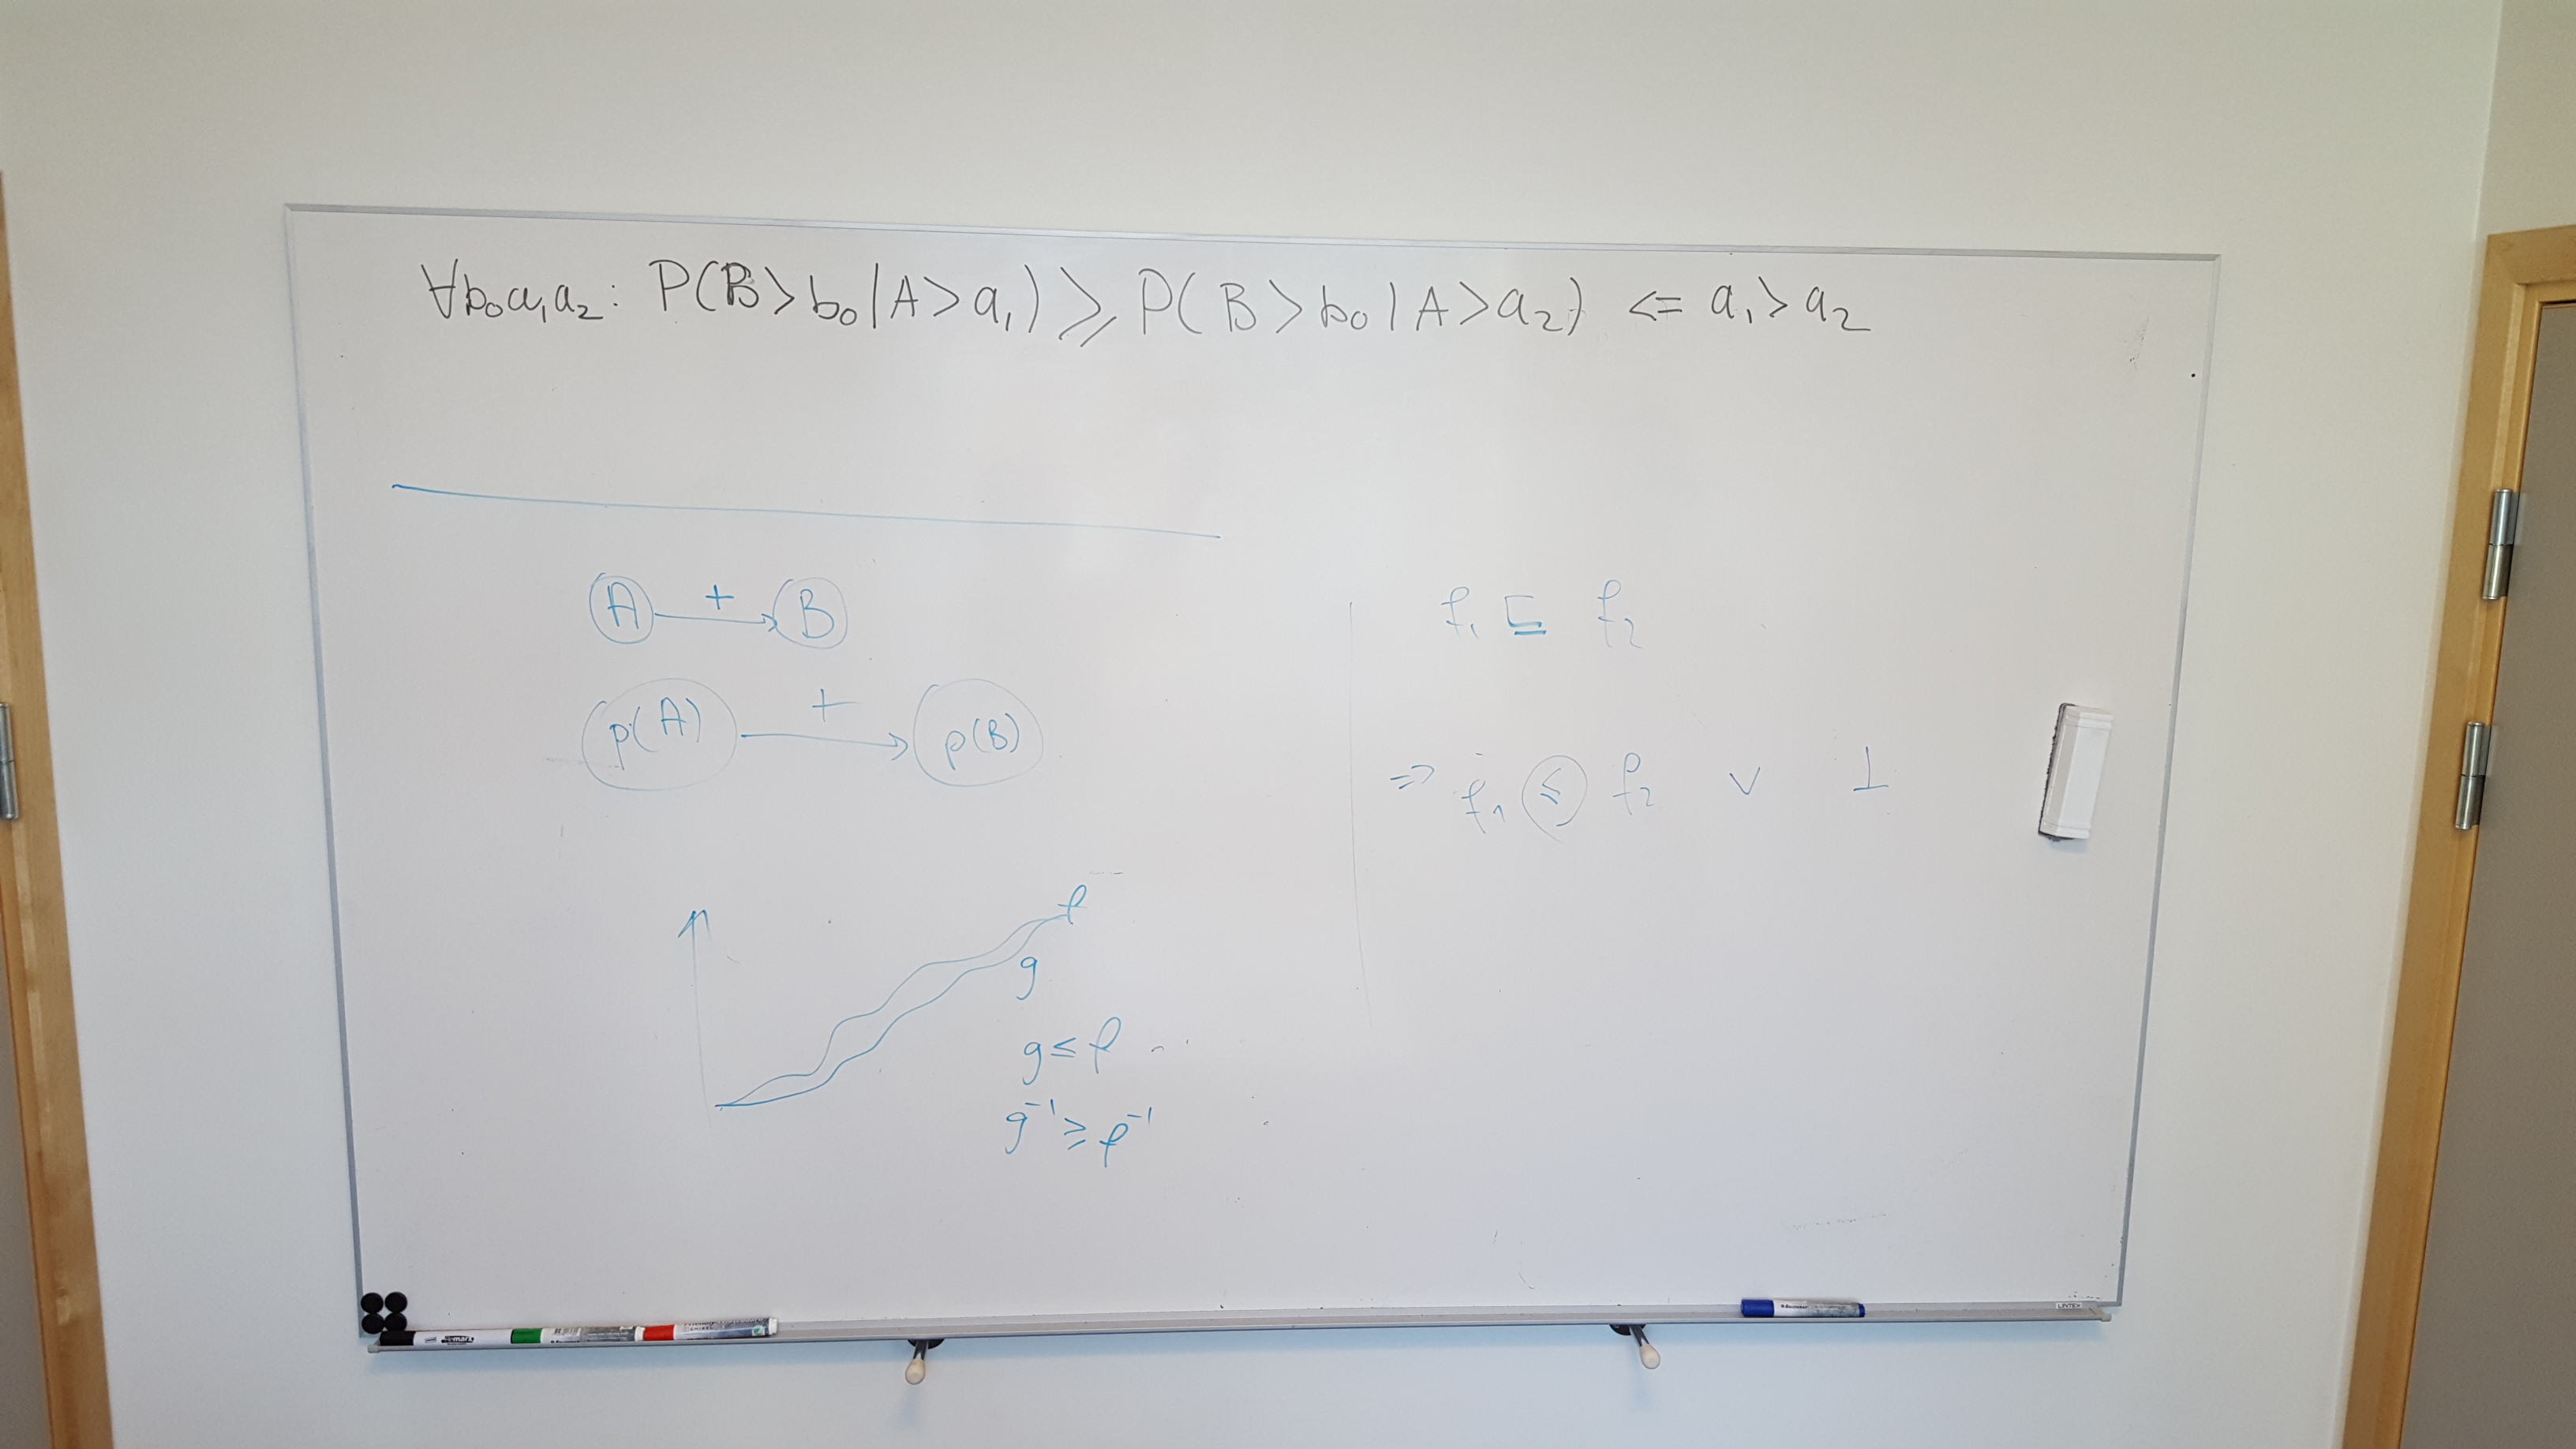 ∀b₀a₁a₂: P(B>b₀|A>a₁) ⩾ P(B>b₀|A>a₂) <= a₁>a₂
A + B
p(A) + p(B)
f
g
g ≤ f
g⁻¹ ≥ f⁻¹
f₁ ⊑ f₂
=> f₁ ≤ f₂ ∨ ⊥